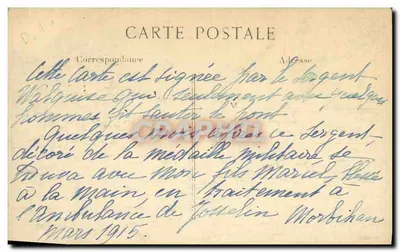 CARTE POSTALE
Correspondance Adresse
Cette carte est signée par le sergent
qui seulement avec quelques
hommes fit sauter le pont
Quelques mois après ce sergent,
décoré de la médaille militaire, se
trouva avec mon fils Marcel, blessé
à la main, en traitement à
l'Ambulance de Josselin Morbihan
Mars 1915.